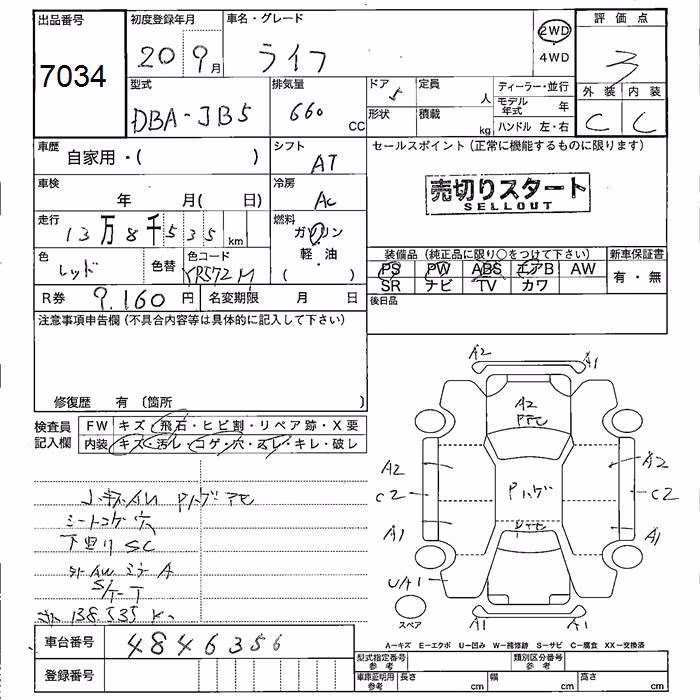 出品番号 初度登録年月 車名・グレード 評価点
7034 20 9月 ライフ 2WD 4WD 3
型式 排気量 ドア 定員 ディーラー・並行 外装 内装
DBA-JB5 660 CC 5 人 モデル年式 年 C C
形状 積載 kg ハンドル 左・右
車歴 自家用・( ) シフト AT セールスポイント(正常に機能するものに限ります)
車検 年 月( 日) 冷房 AC 売切りスタート
SELLOUT
走行 13万8千535 km 燃料 ガソリン 軽・油 ( )
色 レッド 色替 色コード YR572M 装備品(純正品に限り○をつけて下さい) 新車保証書
PS PW ABS エアB AW 有・無
SR ナビ TV カワ
R券 9,160円 名変期限 月 日 後日品
注意事項申告欄(不具合内容等は具体的に記入して下さい)
修復歴 有 〔箇所 〕
検査員記入欄 FW キズ・飛石・ヒビ割・リペア跡・X要
内装 キズ・汚レ・コゲ・穴・スレ・キレ・破レ
シートコゲ穴
下回りSC
138535
A2 A1
A2
A2 A2
C2 C2
A1 A1
UA1
A1 A1
スペア
A-キズ E-エクボ U-凹み W-補修跡 S-サビ C-腐食 XX-交換済
車台番号 4846356
登録番号
型式指定番号 参考 類別区分番号 参考
車庫証明用 参考 長さ cm 幅 cm 高さ cm